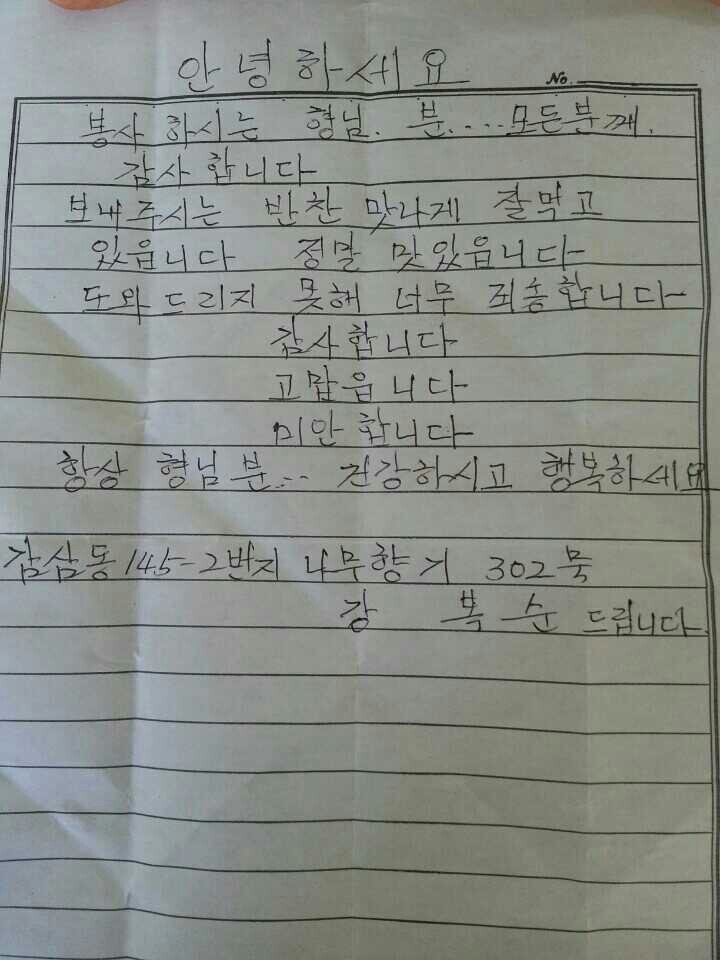 안녕하세요
No.
봉사 하시는 형님. 분.....모든분께.
감사 합니다
보내주시는 반찬 맛나게 잘먹고
있읍니다 정말 맛있읍니다
도와드리지 못해 너무 죄송합니다
감사합니다
고맙읍니다
미안합니다
항상 형님분... 건강하시고 행복하세요
감삼동 145-2번지 나무향기 302호
강 복순 드립니다.